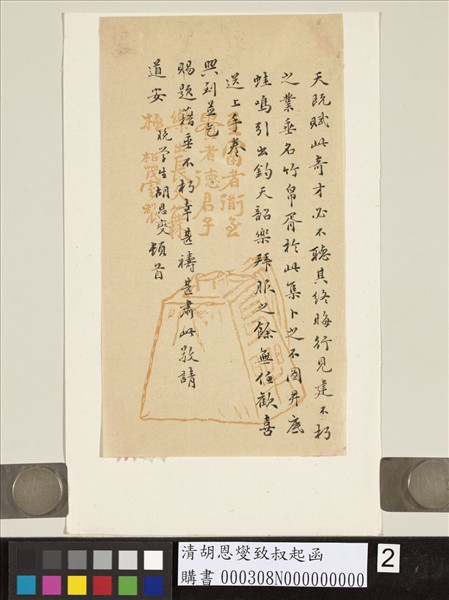 天既賦此奇才必不聽其終晦行見建不朽
之業垂名竹帛胥於此集卜之不圖井底
蛙鳴引出鈞天韶樂拜服之餘無任歡喜
送上手卷
照到並乞
賜題藉垂不朽幸甚禱甚肅此敬請
道安
晚學生胡恩燮頓首
清胡恩燮致叔起函
購書 000308N000000000
2